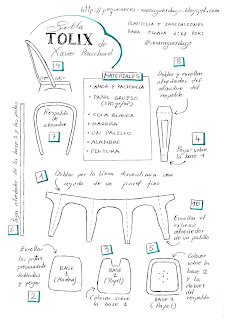 http://pequeneces-maruguerdugo.blogspot.com
Silla
TOLIX de
Xavier Pauchard
PLANTILLA E INDICACIONES
PARA ESCALA 1/12 POR:
MATERIALES
- AMOR Y PACIENCIA
- PAPEL GRUESO
- COLA BLANCA
- MADERA
- UN PALILLO
- ALAMBRE
- PINTURA
9
Respaldo de alambre
7
8
Doblar y enrollar
alrededor del
alambre del
respaldo
4
Pegar sobre
la base 1
6
Pegar alrededor de la base 2 y las patas
1
Doblar por la línea discontinua con
ayuda de un pincel fino
10
Enrollar el
extremo
alrededor de
un palillo
Enrollar
las patas
previamente
dobladas y
pegar
2
BASE 1
(Madera)
3
BASE 2
(Papel)
Colocar sobre
la base 1
5
BASE 3
(Papel)
Colocar sobre
la base 2
y la
del
respaldo